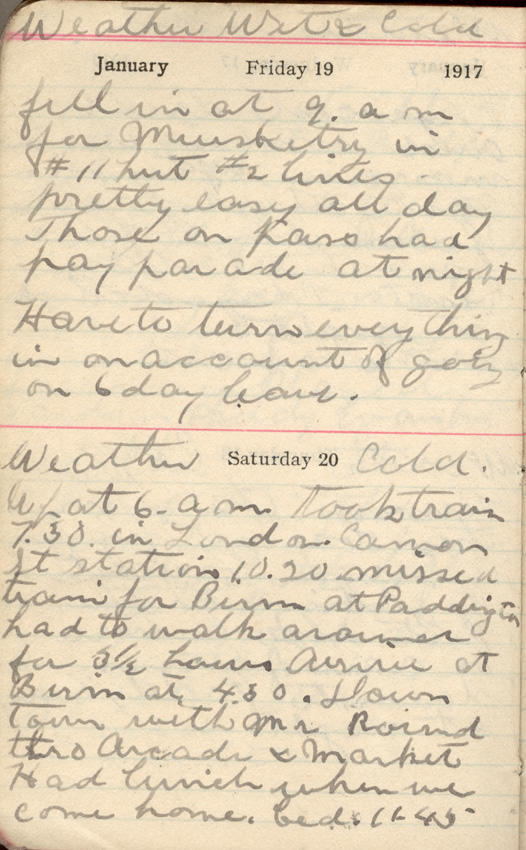 Weather Wet & Cold
January Friday 19 1917
fell in at 9. a m
for Musketry in
#11 hut #2 lines
pretty easy all day
Those on pass had
pay parade at night
Have to turn everything
in on account of going
on 6 day leave.
Weather Saturday 20 Cold.
Up at 6. a.m. Took train
7.30. in London Cannon
St station 10.20 missed
train for Birm at Paddington
had to walk around
for 3½ hours Arrive at
Birm at 4.30. Down
town with Mr
thro Arcade & Market
Had lunch when we
come home. bed. 11-45